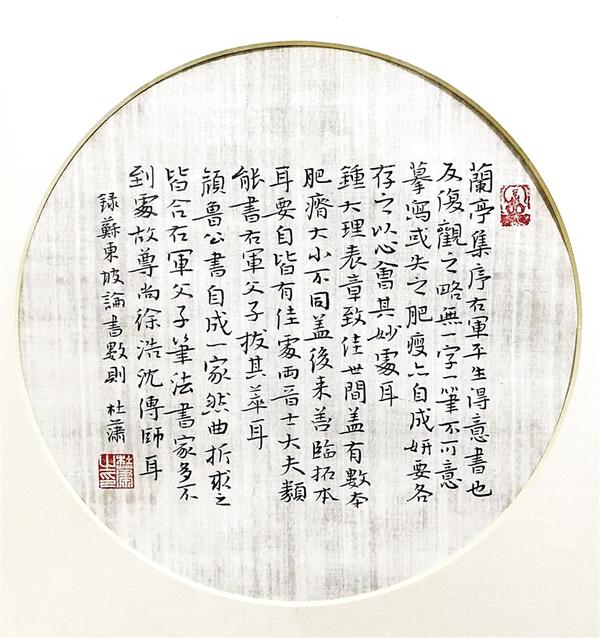 蘭亭集序右軍平生得意書也
反復觀之略無一字一筆不可意
摹寫或失之肥瘦亦自成妍要各
存之以心會其妙處耳
鍾大理表章致佳世間盖有數本
肥瘠大小不同盖後来善臨拓本
耳要自皆有佳處兩晉士大夫類
能書右軍父子拔其萃耳
顏魯公書自成一家然曲折求之
皆合右軍父子筆法書家多不
到處故尊尚徐浩沈傳師耳
録蘇東坡論書數則 杜瀟
杜瀟之印